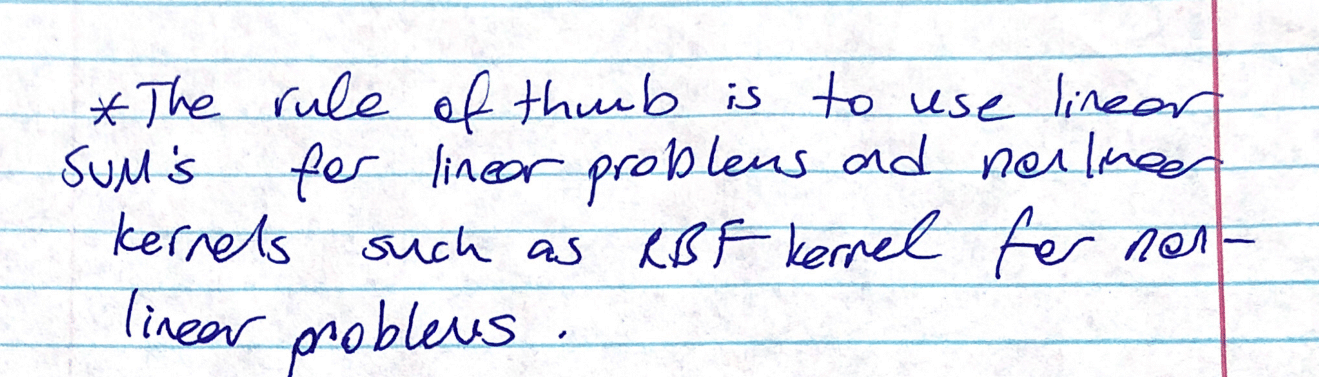 *The rule of thumb is to use linear
SVM's for linear problems and nonlinear
kernels such as RBF kernel for non-
linear problems.